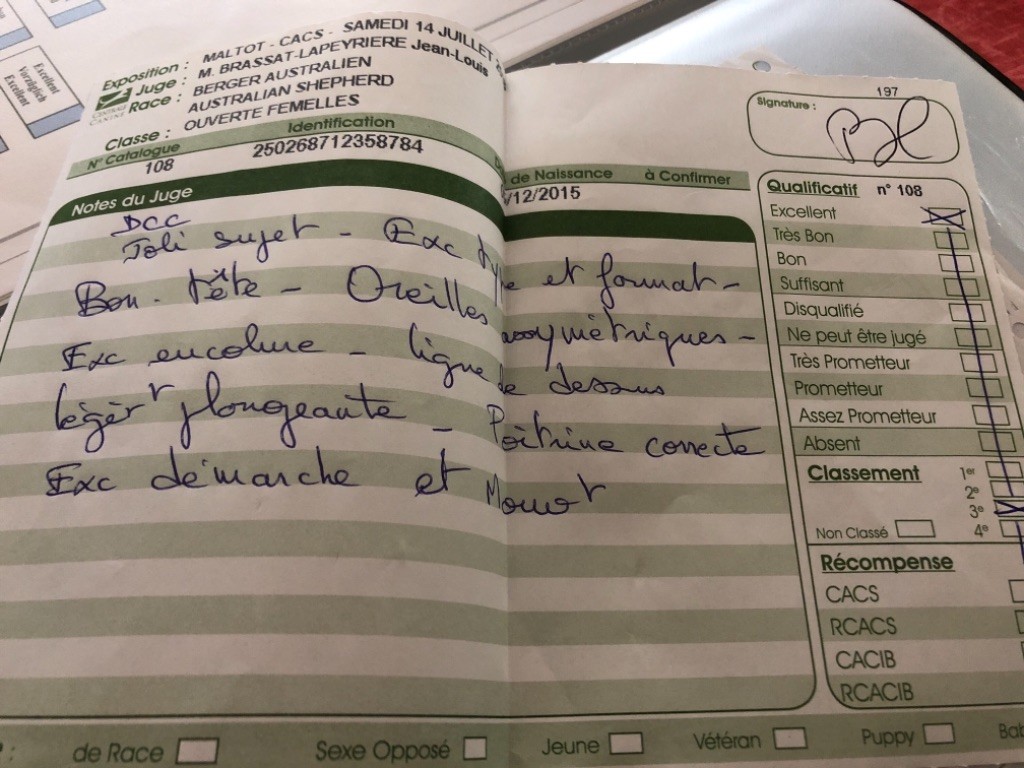 Excellent
Vorzüglich
Excellent
Exposition : MALTOT - CACS - SAMEDI 14 JUILLET
Juge : M. BRASSAT-LAPEYRIERE Jean-Louis
Race : BERGER AUSTRALIEN
AUSTRALIAN SHEPHERD
Classe : OUVERTE FEMELLES
N° Catalogue Identification de Naissance à Confirmer
108 250268712358784 /12/2015
Notes du Juge
DCC
Joli sujet - Exc type et format -
Bon. tête - Oreilles assymétriques -
Exc encolure - ligne de dessus
légèr r plongeante - Poitrine correcte
Exc démarche et
197
Signature :
Qualificatif n° 108
Excellent
Très Bon
Bon
Suffisant
Disqualifié
Ne peut être jugé
Très Prometteur
Prometteur
Assez Prometteur
Absent
Classement 1er
2e
3e
Non Classé 4e
Récompense
CACS
RCACS
CACIB
RCACIB
de Race Sexe Opposé Jeune Vétéran Puppy Bab